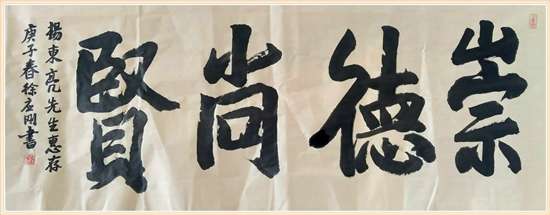 崇德尚賢
揚東亮先生惠存
庚子春徐孟刚書